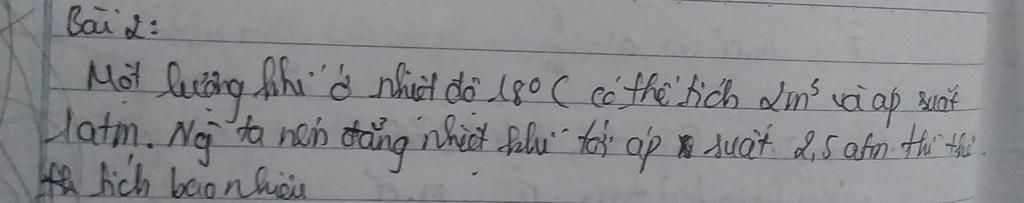 Bài 2:
Một lượng khí ở nhiệt độ 18°C có thể tích 2m³ và áp suất
1atm. Ng ta nén đẳng nhiệt khí tới áp suất 2,5 atm. thì thể
tích bao nhiêu